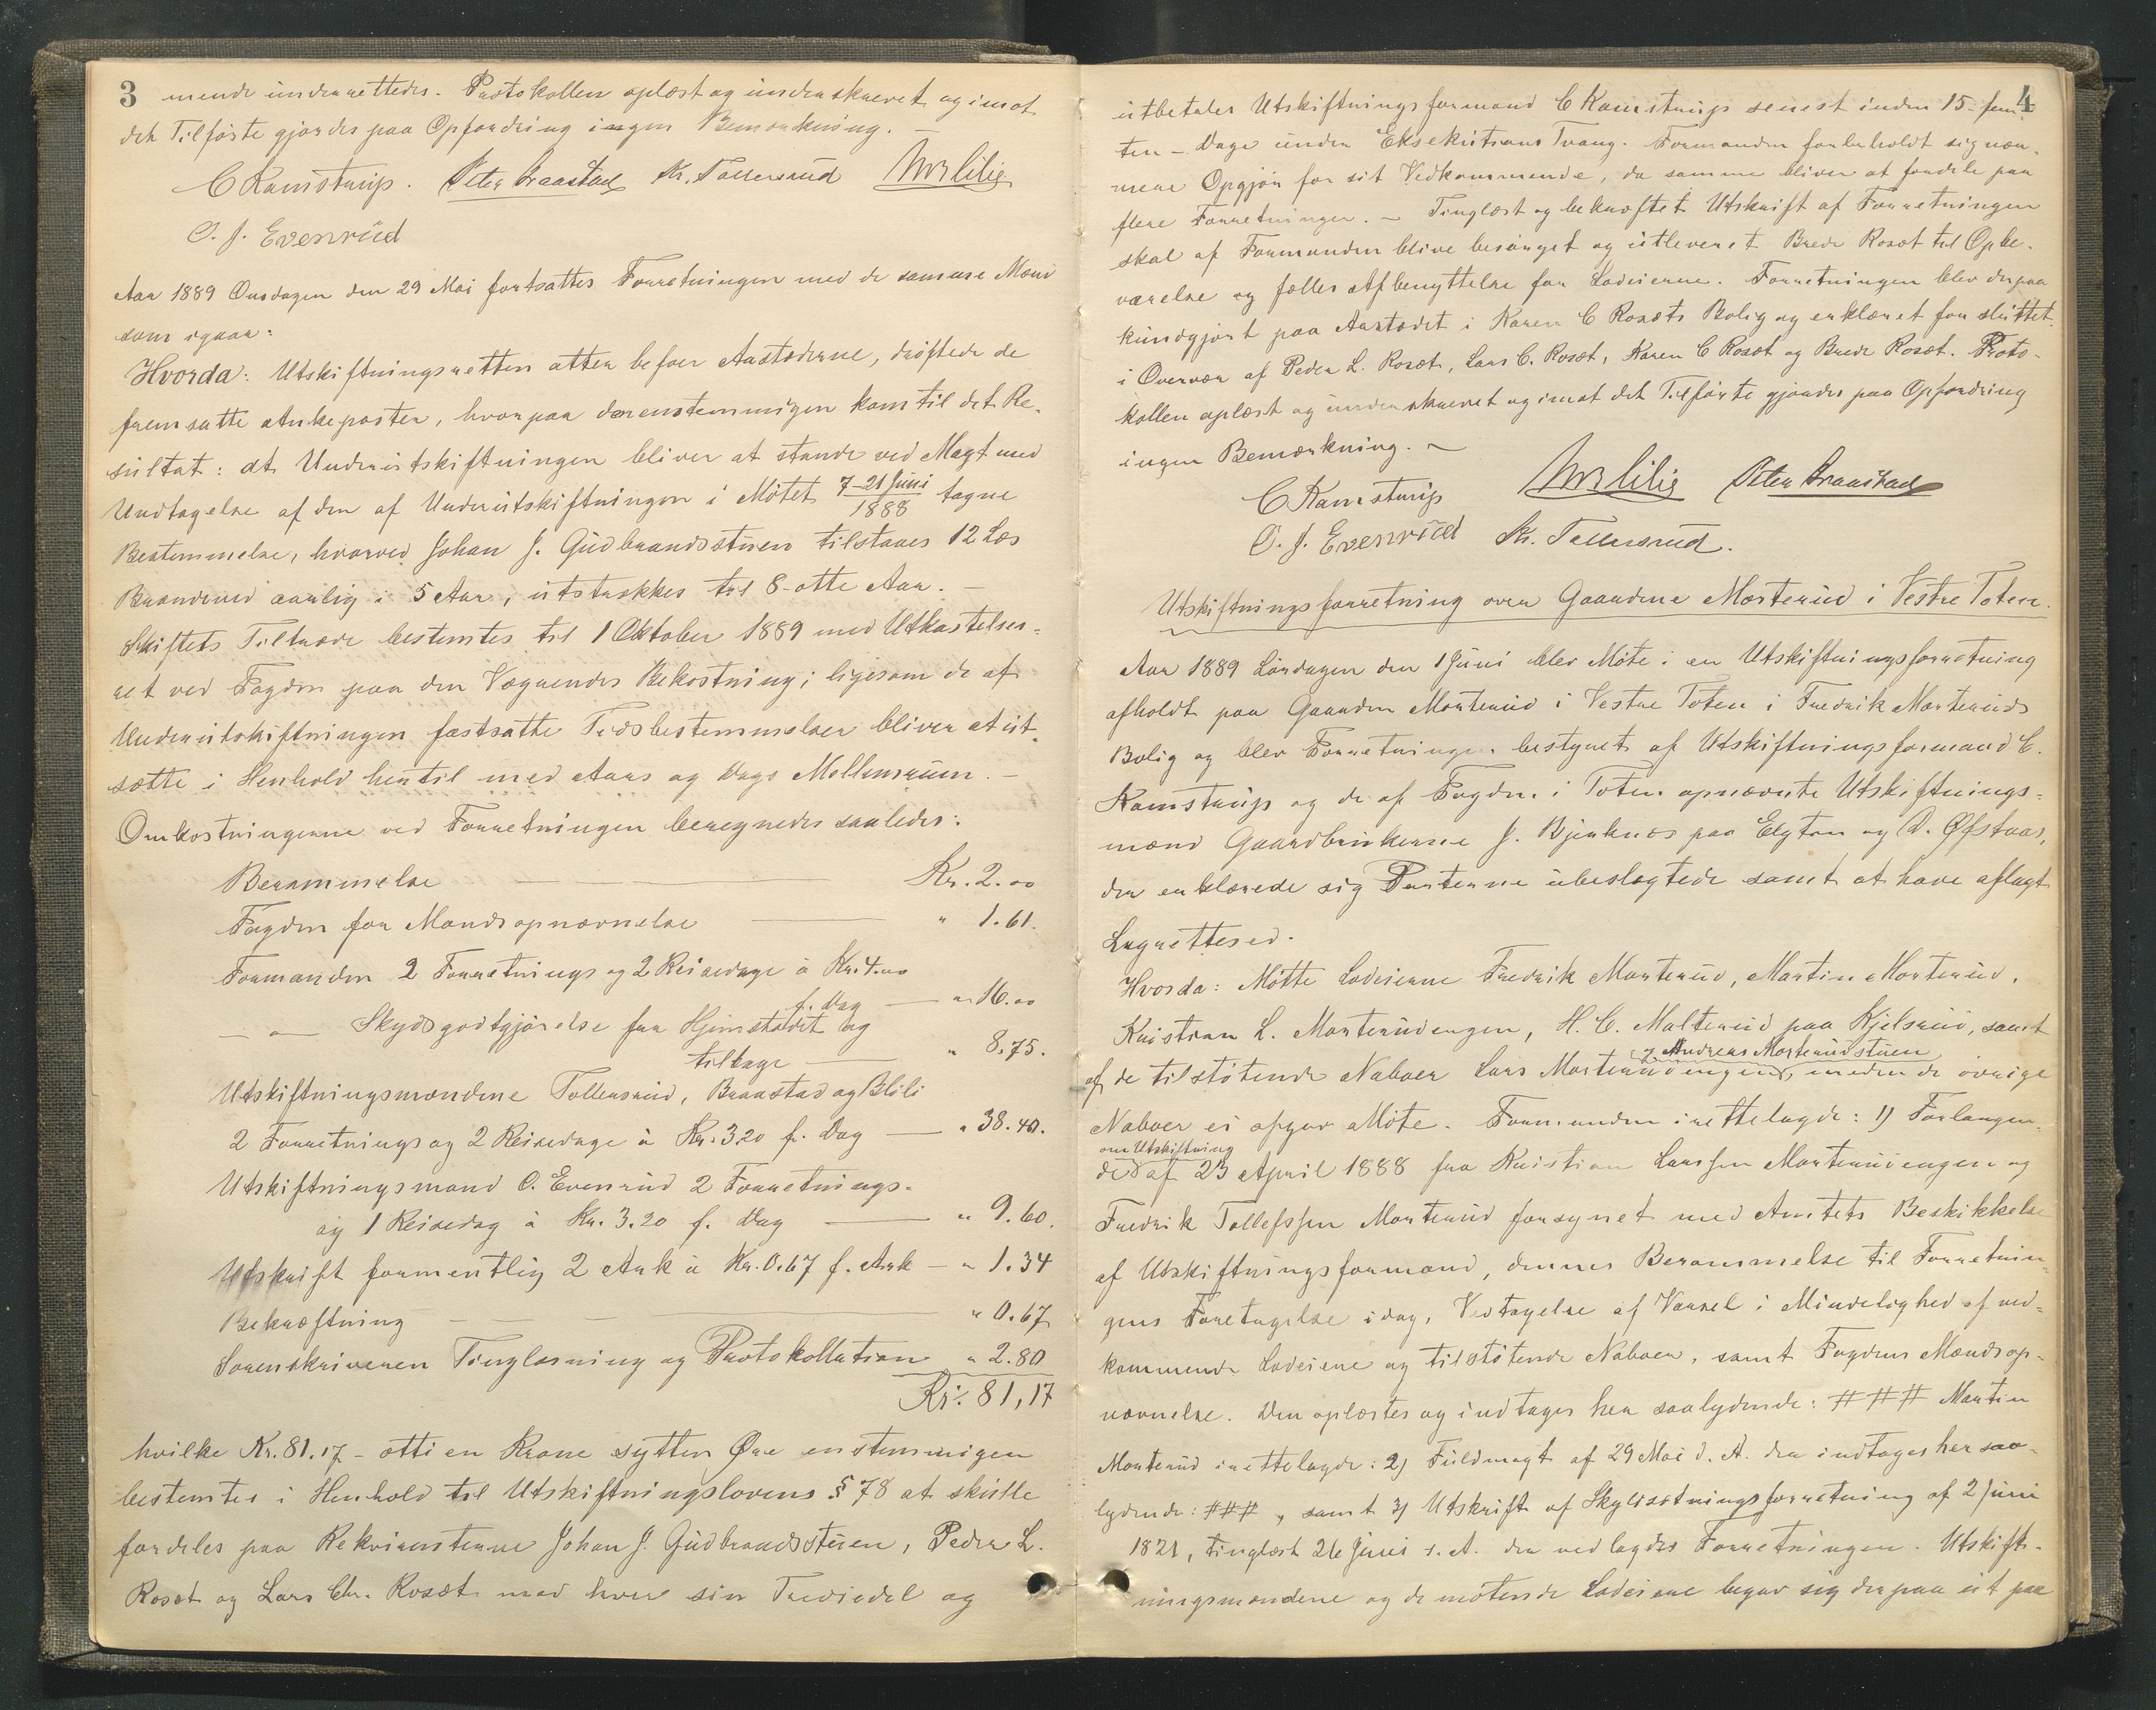 3 mende underrettedes. Protokollen oplæst og underskrevet og imot
det Tilførte gjordes paa Opfordring ingen Bemærkning. —
C Kamstrup. Peter Braastad Kr. Tollersrud
O. J. Evenrud
Aar 1889 Onsdagen den 29 Mai fortsattes Forretningen med de samme Mænd
som igaar:
Hvorda: Utskiftningsretten atter befoer Aastæderne, drøftede de
fremsatte Ankeposter, hvorpaa den enstemmigen kom til det Re-
sultat: At Underutskiftningen bliver at stande ved Magt med
Undtagelse af den af Underutskiftningen i Møtet 7-21 Juni 1888 tagne
Bestemmelse, hvorved Johan J. Gudbrandsstuen tilstaaes 12 Læs
Brændeved aarlig i 5 Aar, utstrækkes til 8-otte Aar. —
Skiftets Tiltræde bestemtes til 1 Oktober 1889 med Utkastelses-
ret ved Fogden paa den Vægrendes Bekostning; ligesom de af
Underutskiftningen fastsatte Tidsbestemmelser bliver at ut-
sætte i Henhold hertil med Aars og Dags Mellemrum. —
Omkostningerne ved Forretningen beregnedes saaledes:
Berammelse — Kr. 2.00
Fogden for Mandsopnævnelse — " 1.61.
Formanden 2 Forretnings og 2 Reisedage à Kr. 4.00
f. Dag — " 16.00
— " — Skydsgodtgjørelse fra Hjemstedet og
tilbage — " 8,75.
Utskiftningsmændene Tollersrud, Braastad og Blili
2 Forretnings og 2 Reisedage à Kr. 3.20 f. Dag — " 38.40.
Utskiftningsmand O. Evenrud 2 Forretnings-
og 1 Reisedag à Kr. 3.20 f. Dag — " 9.60.
Utskrift formentlig 2 Ark à Kr. 0.67 f. Ark — " 1.34
Bekræftning — " 0.67
Sorenskriveren Tinglæsning og Protokollation " 2.80
Kr. 81,17
hvilke Kr. 81.17 - otti en Krone sytten Øre enstemmigen
bestemtes i Henhold til Utskiftningslovens § 78 at skulle
fordeles paa Rekvirenterne Johan J. Gudbrandsstuen, Peder L.
Rosæt og Lars Chr. Rosæt med hver sin Trediedel og
4
utbetales Utskiftningsformand C Kamstrup senest inden 15- fem-
ten - Dage under Eksekutions Tvang. Formanden forbeholdt sig nær-
mere Opgjør for sit Vedkommende, da samme bliver at fordele paa
flere Forretninger. — Tinglæst og bekræftet Utskrift af Forretningen
skal af Formanden blive besørget og utleveret Brede Rosæt til Opbe-
varelse og fælles Afbenyttelse for Lodeierne. Forretningen blev derpaa
kundgjort paa Aastedet i Karen C Rosæts Bolig og erklæret for sluttet
i Overvær af Peder L. Rosæt, Lars C. Rosæt, Karen C Rosæt og Brede Rosæt. Proto-
kollen oplæst og underskrevet og imot det Tilførte gjordes paa Opfordring
ingen Bemærkning. —
C Kamstrup Peter Braastad
O. J. Evenrud Kr. Tollersrud.
Utskiftningsforretning over Gaardene Mørterud i Vestre Toten.
Aar 1889 Lørdagen den 1 Juni blev Møte i en Utskiftningsforretning
afholdt paa Gaarden Mørterud i Vestre Toten i Fredrik Mørteruds
Bolig og blev Forretningen bestyret af Utskiftningsformand C.
Kamstrup og de af Fogden i Toten opnævnte Utskiftnings-
mænd Gaardbrukerne J. Bjerknes paa Elgton og D. Øfstaas,
der erklærede sig Parterne ubeslægtede samt at have aflagt
Lagrettesed.
Hvorda: Møtte Lodeierne Fredrik Mørterud, Martin Mørterud,
Kristian L. Mørterudengen, H. C. Malterud paa Kjelsrud, samt
og Andreas Mørterudstuen
af de tilstøtende Naboer Lars Mørterudengen, meden de øvrige
Naboer ei afgav Møte. Formanden irettelagde: 1) Forlangen-
om Utskiftning
de af 23 April 1888 fra Kristian Larssen Mørterudengen og
Fredrik Tollefssen Mørterud forsynet med Amtets Beskikkelse
af Utskiftningsformand, dennes Berammelse til Forretnin-
gens Foretagelse idag, Vedtagelse af Varsel i Mindelighed af ved-
kommende Lodeiere og tilstøtende Naboer, samt Fogdens Mandsop-
nævnelse. Den oplæstes og indtages her saalydende: # # # Martin
Mørterud irettelagde: 2) Fuldmagt af 29 Mai d. A. der indtages her saa-
lydende: ###, samt 3) Utskrift af Skyldsætningsforretning af 2 Juni
1821, tinglæst 26 Juni s. A. der vedlagdes Forretningen. Utskift-
ningsmændene og de møtende Lodeiere begav sig derpaa ut paa